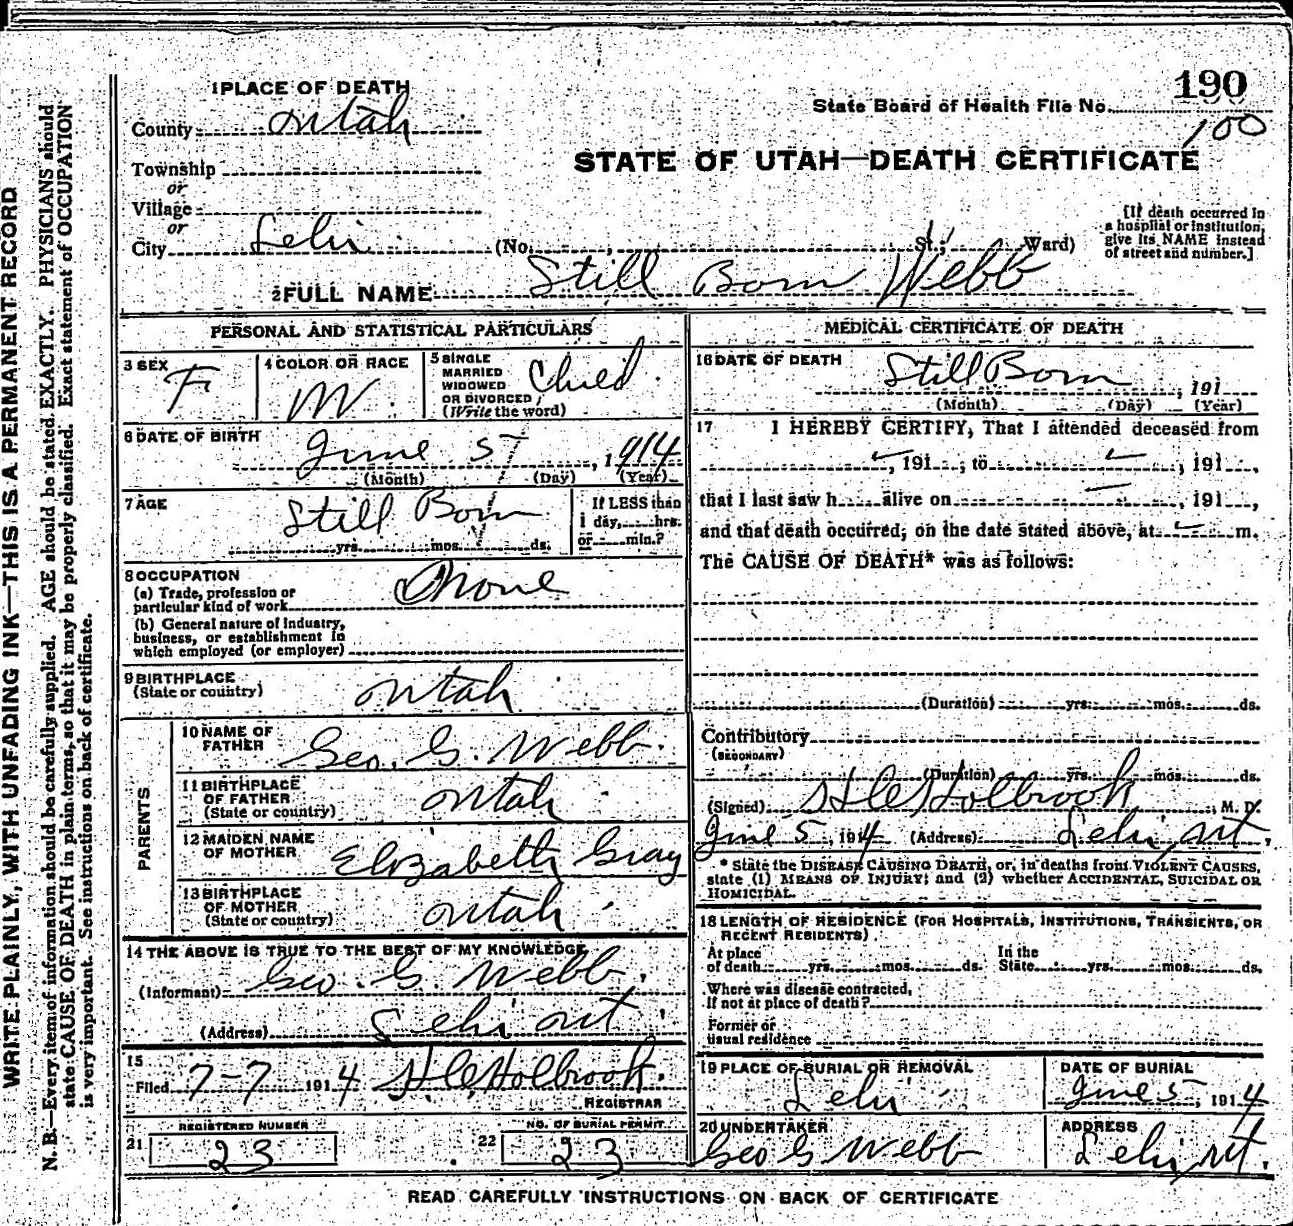 190
State Board of Health File No.
100
STATE OF UTAH—DEATH CERTIFICATE
1 PLACE OF DEATH
County Utah
Township
or
Village
or
City Lehi (No. , St.; Ward)
[If death occurred in
a hospital or institution,
give its NAME instead
of street and number.]
2 FULL NAME Still Born Webb
PERSONAL AND STATISTICAL PARTICULARS
3 SEX
F
4 COLOR OR RACE
W
5 SINGLE
MARRIED
WIDOWED
OR DIVORCED
(Write the word)
Child
6 DATE OF BIRTH
June 5, 1914
(Month) (Day) (Year)
7 AGE
Still Born
yrs. mos. ds.
If LESS than
1 day, hrs.
or min.?
8 OCCUPATION
(a) Trade, profession or
particular kind of work
None
(b) General nature of industry,
business, or establishment in
which employed (or employer)
9 BIRTHPLACE
(State or country)
Utah
PARENTS
10 NAME OF
FATHER
Geo. G. Webb.
11 BIRTHPLACE
OF FATHER
(State or country)
Utah
12 MAIDEN NAME
OF MOTHER
Elizabeth Gray
13 BIRTHPLACE
OF MOTHER
(State or country)
Utah
14 THE ABOVE IS TRUE TO THE BEST OF MY KNOWLEDGE
(Informant) Geo. G. Webb.
(Address) Lehi Ut.
15
Filed 7-7 1914
REGISTRAR
REGISTERED NUMBER
21 23
NO. OF BURIAL PERMIT
22 23
MEDICAL CERTIFICATE OF DEATH
16 DATE OF DEATH
Still Born, 191
(Month) (Day) (Year)
17 I HEREBY CERTIFY, That I attended deceased from
, 191 , to , 191 ,
that I last saw h alive on , 191 ,
and that death occurred, on the date stated above, at m.
The CAUSE OF DEATH* was as follows:
(Duration) yrs. mos. ds.
Contributory
(SECONDARY)
(Duration) yrs. mos. ds.
(Signed) Holbrook, M. D.
June 5, 1914 (Address) Lehi, Ut.
* State the DISEASE CAUSING DEATH, or, in deaths from VIOLENT CAUSES,
state (1) MEANS OF INJURY; and (2) whether ACCIDENTAL, SUICIDAL OR
HOMICIDAL.
18 LENGTH OF RESIDENCE (FOR HOSPITALS, INSTITUTIONS, TRANSIENTS, OR
RECENT RESIDENTS)
At place
of death yrs. mos. ds.
In the
State yrs. mos. ds.
Where was disease contracted,
If not at place of death?
Former or
usual residence
19 PLACE OF BURIAL OR REMOVAL
Lehi
DATE OF BURIAL
June 5, 1914
20 UNDERTAKER
Geo G Webb
ADDRESS
Lehi, Ut.
READ CAREFULLY INSTRUCTIONS ON BACK OF CERTIFICATE
WRITE PLAINLY, WITH UNFADING INK—THIS IS A PERMANENT RECORD
N. B.—Every item of information should be carefully supplied. AGE should be stated EXACTLY. PHYSICIANS should
state CAUSE OF DEATH in plain terms, so that it may be properly classified. Exact statement of OCCUPATION
is very important. See instructions on back of certificate.